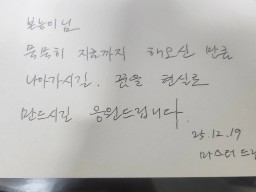 묵묵히 지금까지 해오신 만큼
나아가시길. 꿈을 현실로
만드시길 응원드립니다.
25.12.19
마스터 드림